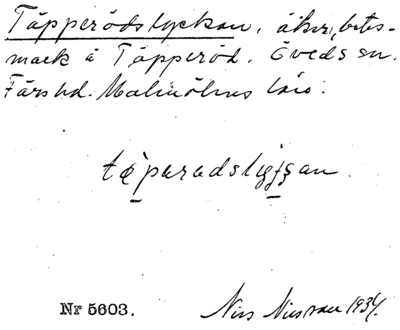 Täpperödslyckan, åker, betes-
mark å Täpperöd. Öveds sn.
Färs hd. Malmöhus län.
tæpuradsligjan
Nr 5603.
Nils Nilsson 1934.